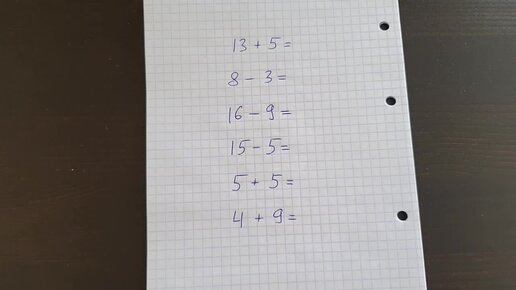 13 + 5 =
8 - 3 =
16 - 9 =
15 - 5 =
5 + 5 =
4 + 9 =